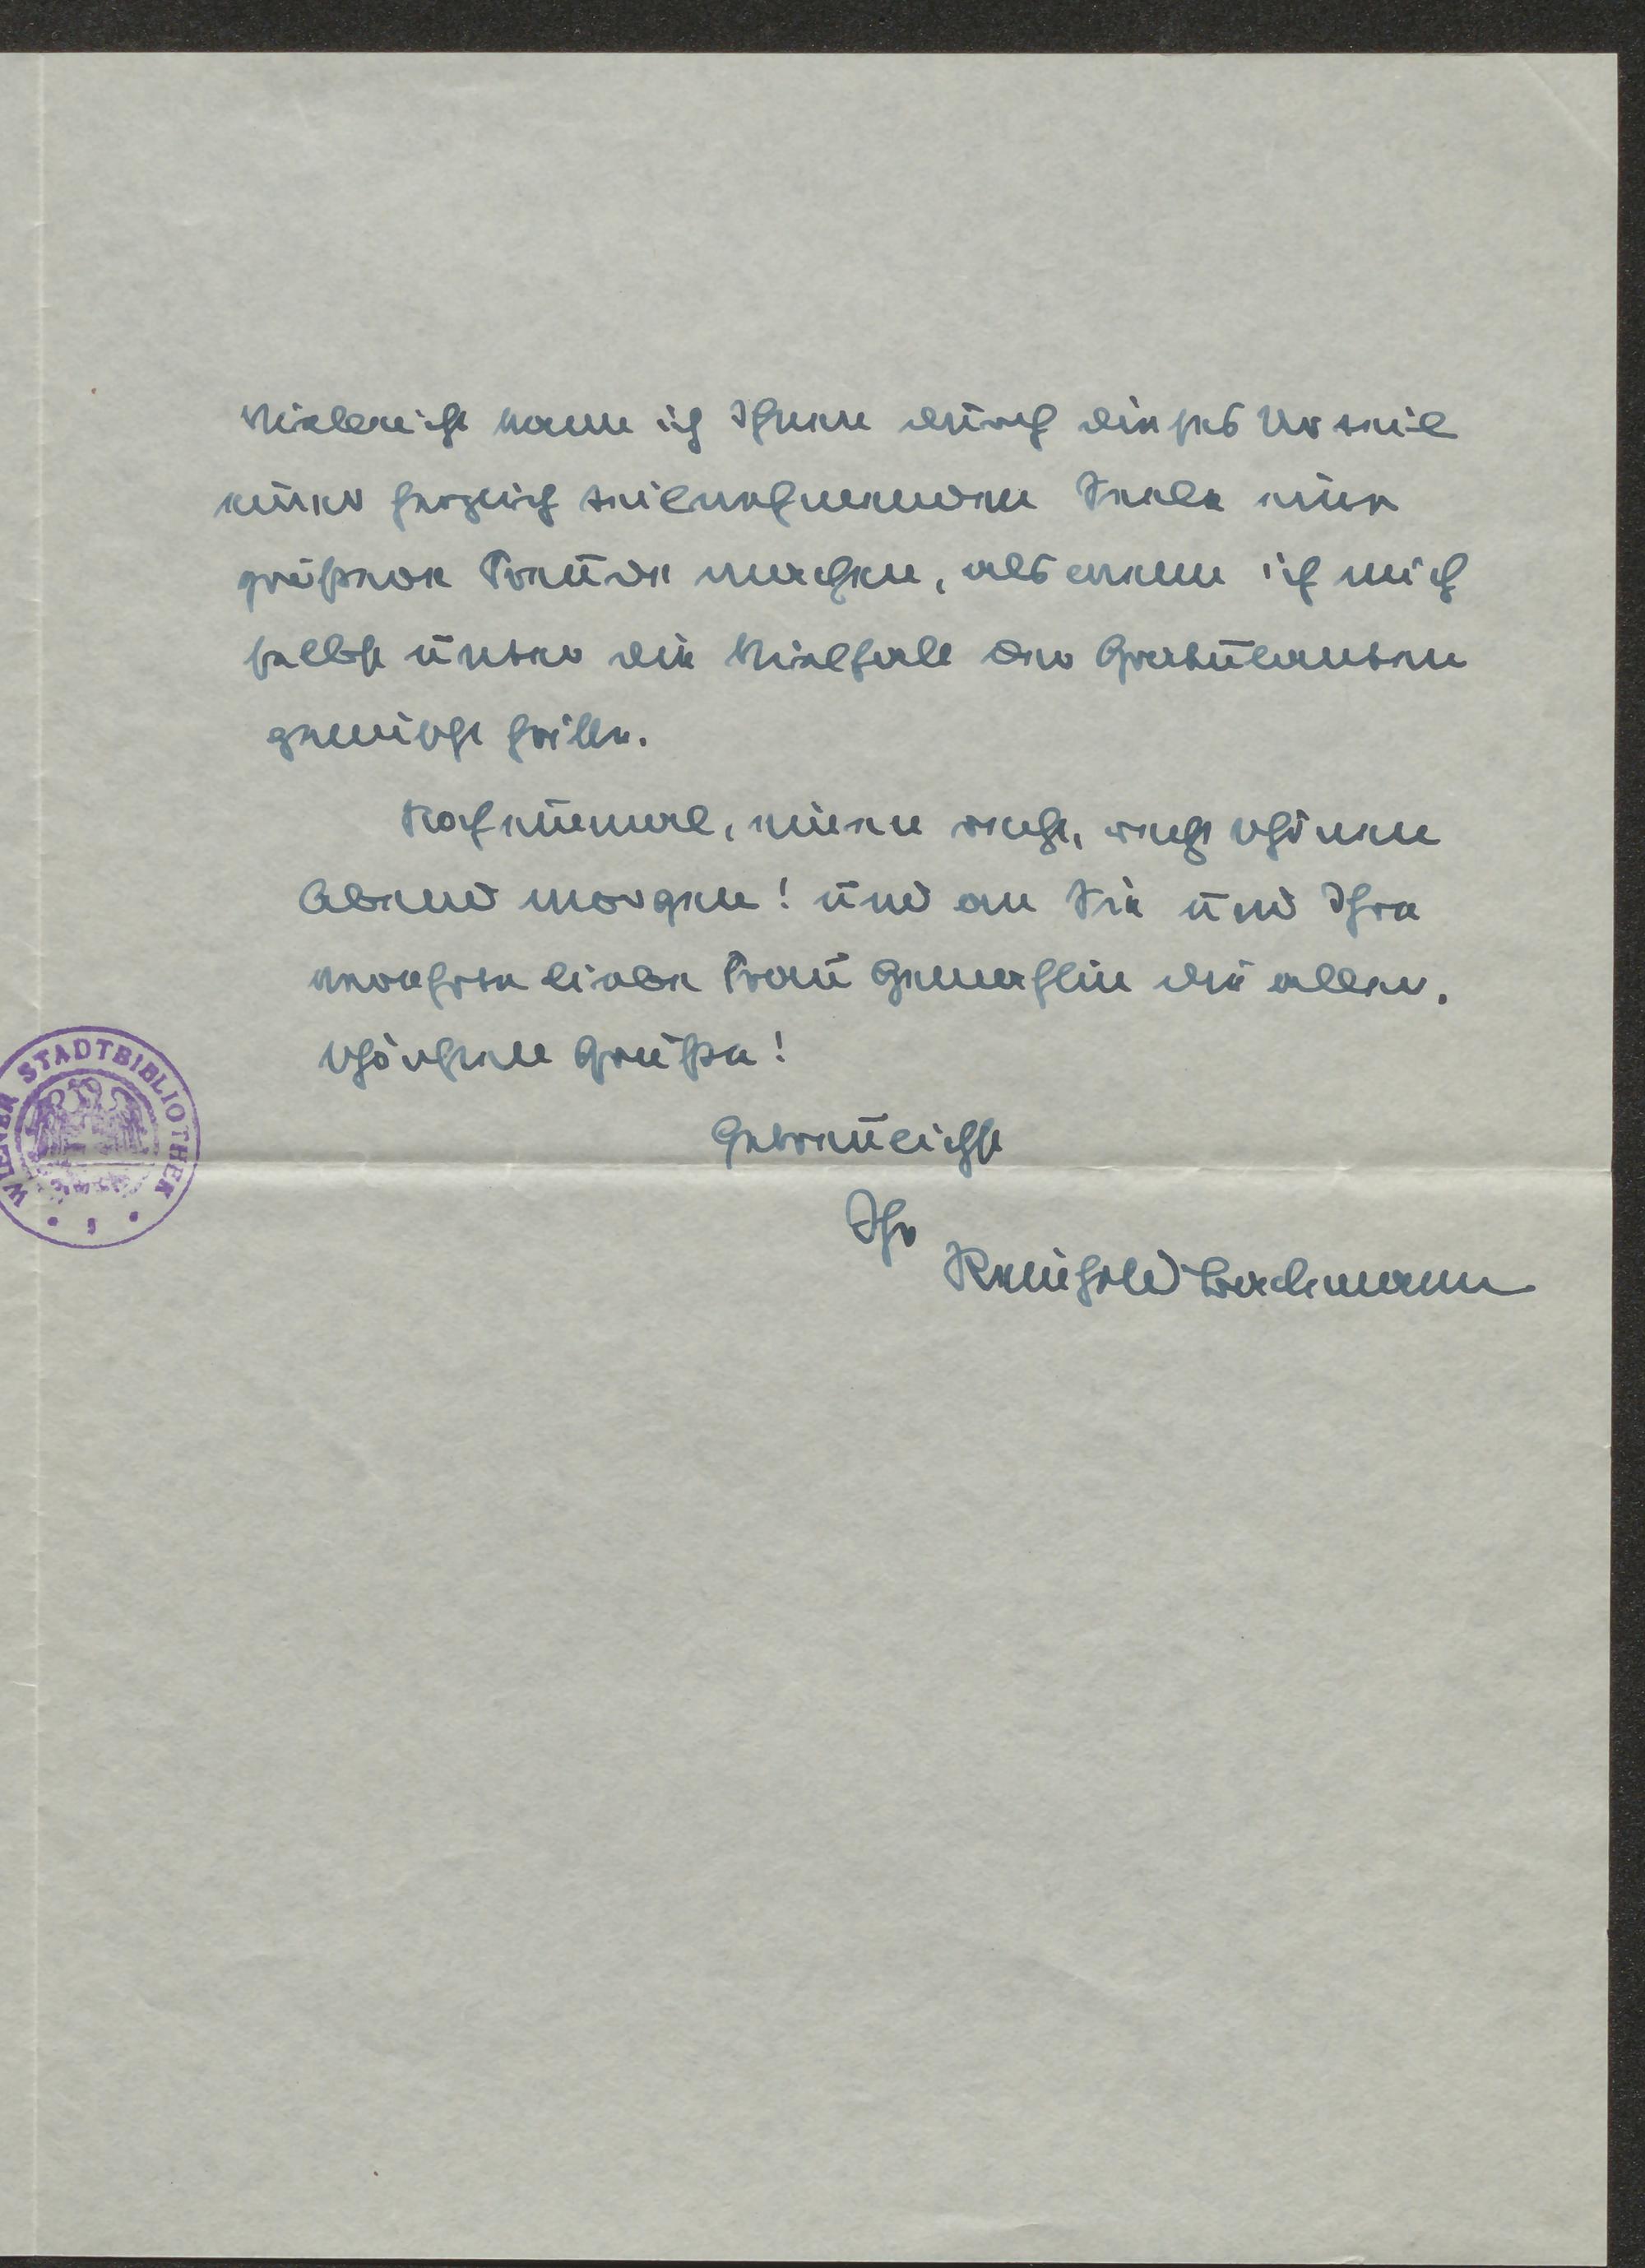 Vielleicht kann ich Ihnen durch dieses Urteil
einer herzlich teilnehmenden Seele eine
größere Freude machen, als wenn ich mich
selbst unter die Vielzahl der Gratulanten
gemischt hätte.
Noch einmal, einen recht, recht schönen
Abend morgen! und an Sie und Ihre
verehrte liebe Frau Gemahlin die aller-
schönsten Grüße!
Getreulichst
Ihr
Reinhold Backmann
WIENER STADTBIBLIOTHEK